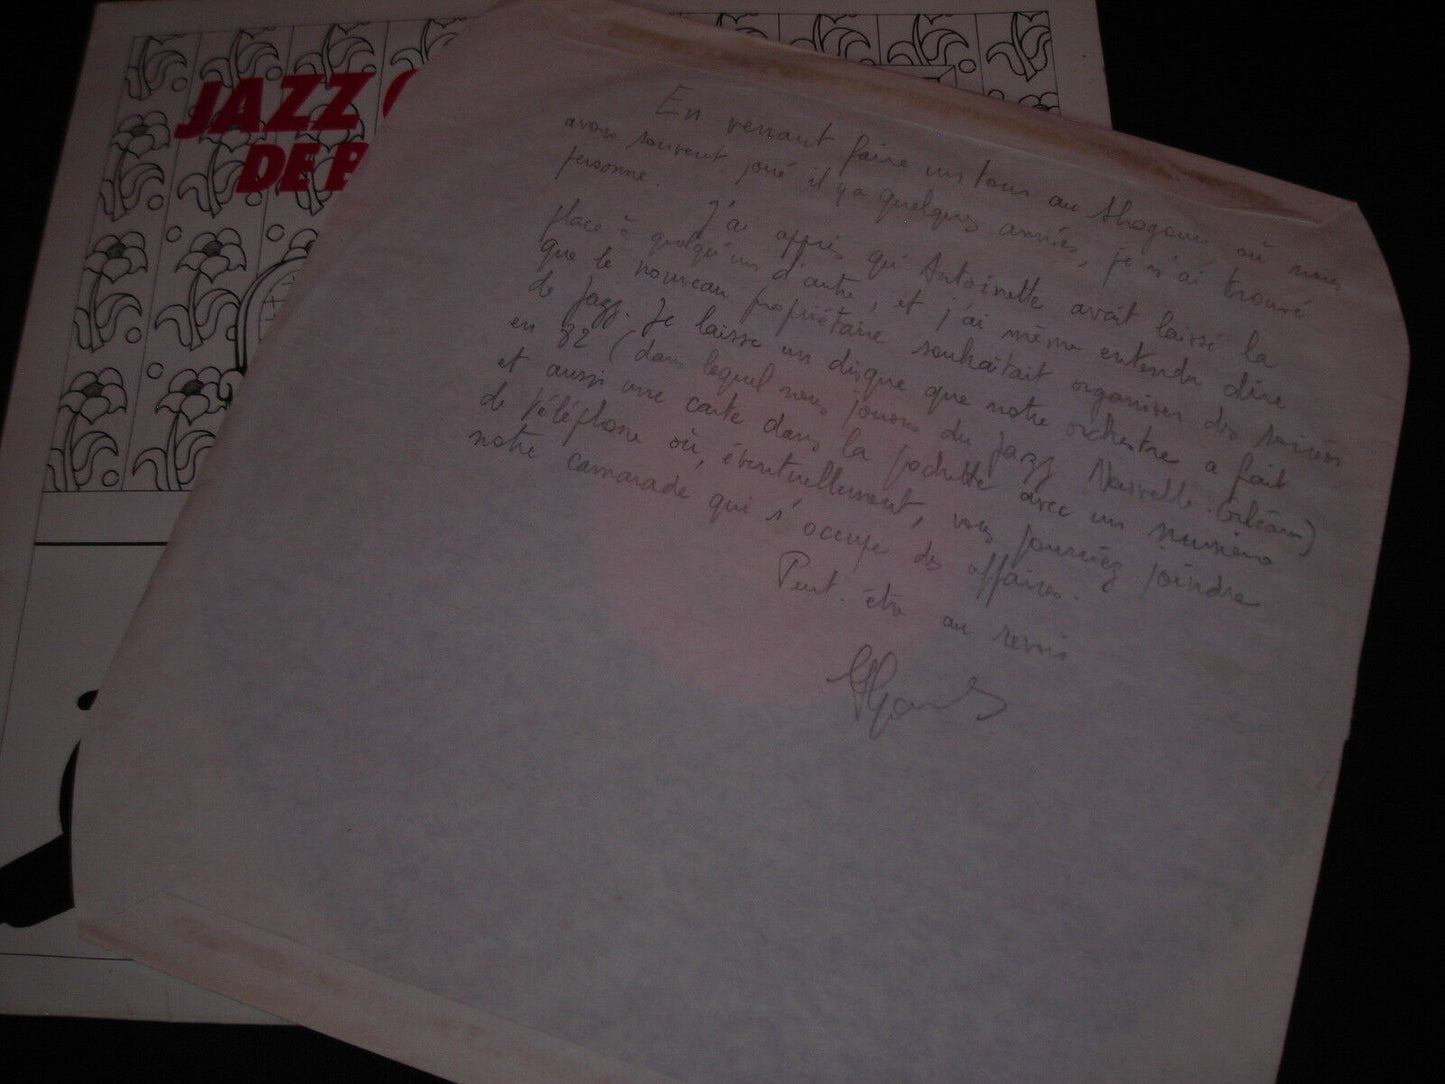 JAZZ
DE P
En venant faire un tour au Shogoun, où nous
avons souvent joué il y a quelques années, je n'ai trouvé
personne.
J'ai appris qu'Antoinette avait laissé la
place à quelqu'un d'autre, et j'ai même entendu dire
que le nouveau propriétaire souhaitait organiser des soirées
de jazz. Je laisse un disque que notre orchestre a fait
en 82 (dans lequel nous jouons du jazz Nouvelle-Orléans)
et aussi une carte dans la pochette avec un numéro
de téléphone où, éventuellement, vous pourriez joindre
notre camarade qui s'occupe des affaires.
Peut-être au revoir